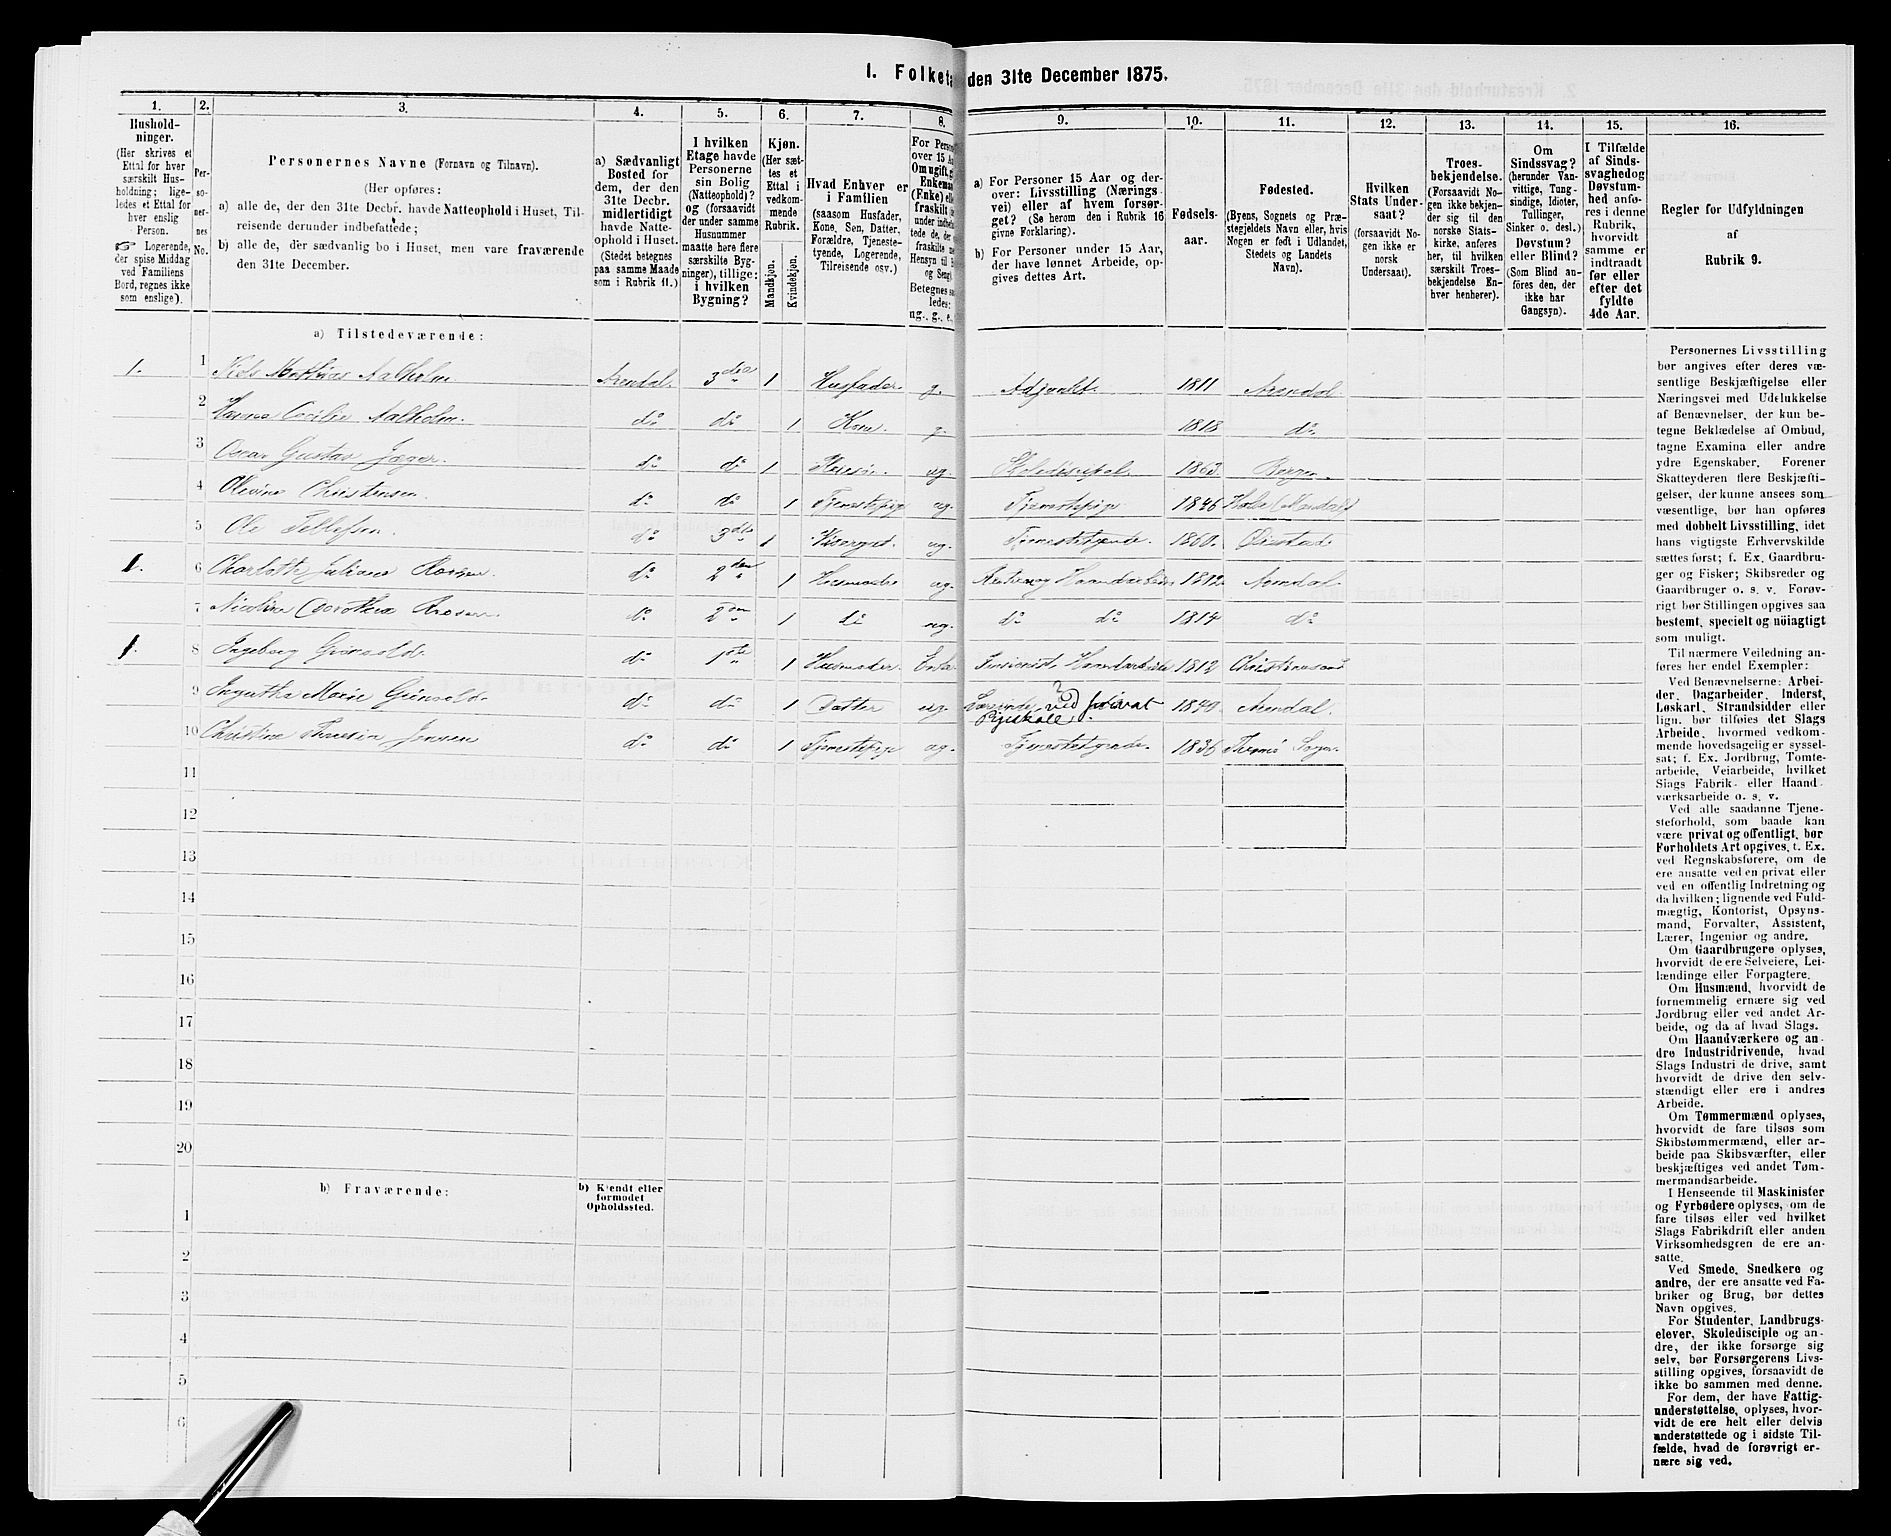 I. Folketæ den 31te December 1875.
1. 2. 3. 4. 5. 6. 7. 8. 9. 10. 11. 12. 13. 14. 15. 16.
Hushold-
ninger.
(Her skrives et
Ettal for hver
særskilt Hus-
holdning; lige-
ledes et Ettal for
hver enslig
Person.
☞ Logerende,
der spise Middag
ved Familiens
Bord, regnes ikke
som enslige).
Per-
so-
ner-
nes
No.
Personernes Navne (Fornavn og Tilnavn).
(Her opføres:
a) alle de, der den 31te Decbr. havde Natteophold i Huset, Til-
reisende derunder indbefattede;
b) alle de, der sædvanlig bo i Huset, men vare fraværende
den 31te December.
a) Sædvanligt
Bosted for
dem, der den
31te Decbr.
midlertidigt
havde Natte-
ophold i Huset.
(Stedet betegnes
paa samme Maade
som i Rubrik 11.)
I hvilken
Etage havde
Personerne
sin Bolig
(Natteophold)?
og (forsaavidt
der under samme
Husnummer
maatte høre flere
særskilte Byg-
ninger), tillige:
i hvilken
Bygning?
Kjøn.
(Her sæt-
tes et
Ettal i
vedkom-
mende
Rubrik.
Mandkjøn.
Kvindekjøn.
Hvad Enhver er
i Familien
(saasom Husfader,
Kone, Søn, Datter,
Forældre, Tjeneste-
tyende, Logerende,
Tilreisende osv.)
For Pers
over 15 A
Om ugift, g
Enkema
(Enke) el
fraskilt
under indb
tede de, de
fraskilte
Hensyn til
og Seng
Betegnes s
ledes:
ug., g., e.,
a) For Personer 15 Aar og der-
over: Livsstilling (Nærings-
vei) eller af hvem forsør-
get? (Se herom den i Rubrik 16
givne Forklaring).
b) For Personer under 15 Aar,
der have lønnet Arbeide, op-
gives dettes Art.
Fødsels-
aar.
Fødested.
(Byens, Sognets og Præ-
stegjeldets Navn eller, hvis
Nogen er født i Udlandet,
Stedets og Landets
Navn).
Hvilken
Stats Under-
saat?
(forsaavidt No-
gen ikke er
norsk
Undersaat).
Troes-
bekjendelse.
(Forsaavidt No-
gen ikke bekjen-
der sig til den
norske Stats-
kirke, anføres
her, til hvilken
særskilt Troes-
bekjendelse En-
hver henhører).
Om
Sindssvag?
(herunder Van-
vittige, Tung-
sindige, Idioter,
Tullinger,
Sinker o. desl.)
Døvstum?
eller Blind?
(Som Blind an-
føres den, der
ikke har
Gangsyn).
I Tilfælde
af Sinds-
svaghed og
Døvstum-
hed anfø-
res i denne
Rubrik,
hvorvidt
samme er
indtraadt
før eller
efter det
fyldte
4de Aar.
Regler for Udfyldningen
af
Rubrik 9.
a) Tilstedeværende:
1. 1 Niels Mathias Aalholm Arendal. 3die 1 Husfader g. Adjunkt. 1811 Arendal.
2 Hanna Cecilie Aalholm. do do 1 Kone. g. 1818 do.
3 Oscar Gustav Jæger. do do 1 ug. Skoledisipel 1863 Bergen
4 Olevine Christensen. do do 1 Tjenestepige ug. Tjenestepige 1846
5 Ole Tellefsen do 3die 1 Visergut ug. Tjenestetyende. 1860. Øiestad
1. 6 Charlotte Juliane do 2den 1 Husmoder ug. 1812 Arendal.
7 Nicoline Dorothea do 2den 1 do ug. do do 1814 do
1. 8 Ingeborg do 1ste 1 Husmoder Enke Pensionist, Haandarbeide 1812 Christianssand
9 Marie do do 1 Datter ug. Lærerinde ved privat Pigeskole. 1849 Arendal.
10 Christine Jensen do do 1 Tjenestepige ug. Tjenestetyende. 1836 Sogn.
11
12
13
14
15
16
17
18
19
20
b) Fraværende:
b) Kjendt eller
formodet
Opholdssted.
1
2
3
4
5
6
Personernes Livsstilling
bør angives efter deres væ-
sentlige Beskjæftigelse eller
Næringsvei med Udelukkelse
af Benævnelser, der kun be-
tegne Beklædelse af Ombud,
tagne Examina eller andre
ydre Egenskaber. Forener
Skatteyderen flere Beskjæfti-
gelser, der kunne ansees som
væsentlige, bør han opføres
med dobbelt Livsstilling, idet
hans vigtigste Erhvervskilde
sættes først; f. Ex. Gaardbru-
ger og Fisker; Skibsreder og
Gaardbruger o. s. v. Forøv-
rigt bør Stillingen opgives saa
bestemt, specielt og nøiagtigt
som muligt.
Til nærmere Veiledning an-
føres her endel Exempler:
Ved Benævnelserne: Arbei-
der, Dagarbeider, Inderst,
Løskarl, Strandsidder eller
lign. bør tilføies det Slags
Arbeide, hvormed vedkom-
mende hovedsagelig er syssel-
sat; f. Ex. Jordbrug, Tomte-
arbeide, Veiarbeide, hvilket
Slags Fabrik- eller Haand-
værksarbeide o. s. v.
Ved alle saadanne Tjene-
steforhold, som baade kan
være privat og offentligt, bør
Forholdets Art opgives, t. Ex.
ved Regnskabsførere, om de
ere ansatte ved en privat eller
ved en offentlig Indretning og
da hvilken; lignende ved Fuld-
mægtig, Kontorist, Opsyns-
mand, Forvalter, Assistent,
Lærer, Ingeniør og andre.
Om Gaardbrugere oplyses,
hvorvidt de ere Selveiere, Lei-
lændinge eller Forpagtere.
Om Husmænd, hvorvidt de
fornemmelig ernære sig ved
Jordbrug eller ved andet Ar-
beide, og da af hvad Slags.
Om Haandværkere og an-
dre Industridrivende, hvad
Slags Industri de drive, samt
hvorvidt de drive den selv-
stændigt eller ere i andres
Arbeide.
Om Tømmermænd oplyses,
hvorvidt de fare tilsøs som
Skibstømmermænd, eller ar-
beide paa Skibsværfter, eller
beskjæftiges ved andet Tøm-
mermandsarbeide.
I Henseende til Maskinister
og Fyrbødere oplyses, om de
fare tilsøs eller ved hvilket
Slags Fabrikdrift eller anden
Virksomhedsgren de ere an-
satte.
Ved Smede, Snedkere og
andre, der ere ansatte ved Fa-
briker og Brug, bør dettes
Navn opgives.
For Studenter, Landbrugs-
elever, Skoledisciple og an-
dre, der ikke forsørge sig
selv, bør Forsørgerens Livs-
stilling opgives, forsaavidt de
ikke bo sammen med denne.
For dem, der have Fattig-
understøttelse, oplyses, hvor-
vidt de ere helt eller delvis
understøttede og i sidste Til-
fælde, hvad de forøvrigt er-
nære sig ved.